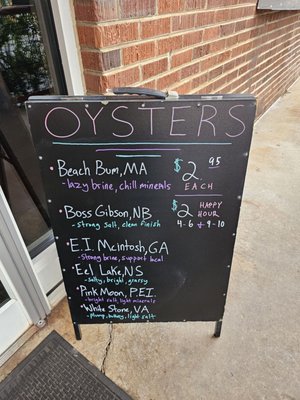 OYSTERS
Beach Bum, MA
-lazy brine, chill minerals
$2.95
EACH
Boss Gibson, NB
-strong salt, clean finish
$2 HAPPY
HOUR
4-6 + 9-10
E.I. McIntosh, GA
-Strong brine, support local
Eel Lake, NS
-Salty, bright, grassy
Pink Moon, P.E.I.
-bright salt, light minerals
White Stone, VA
-plump, buttery, light salt